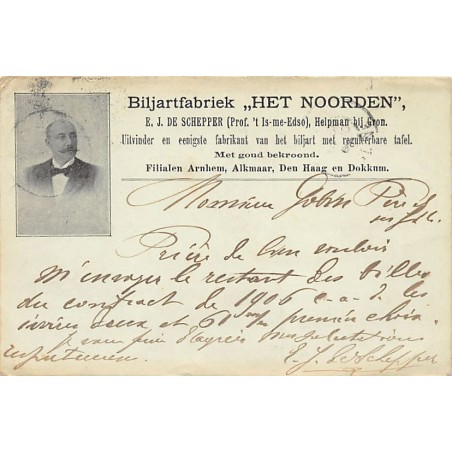 Biljartfabriek „HET NOORDEN”,
E. J. DE SCHEPPER (Prof. 't Is-me-Edso), Helpman bij Gron.
Uitvinder en eenigste fabrikant van het biljart met reguleerbare tafel.
Met goud bekroond.
Filialen Arnhem, Alkmaar, Den Haag en Dokkum.
Monsieur
Prière de bien vouloir
m'envoyer le restant des billes
du contract de 1906 c-a-d les
et 60 premier choix
je vous prie d'agréer mes salutations
E. J. de Schepper